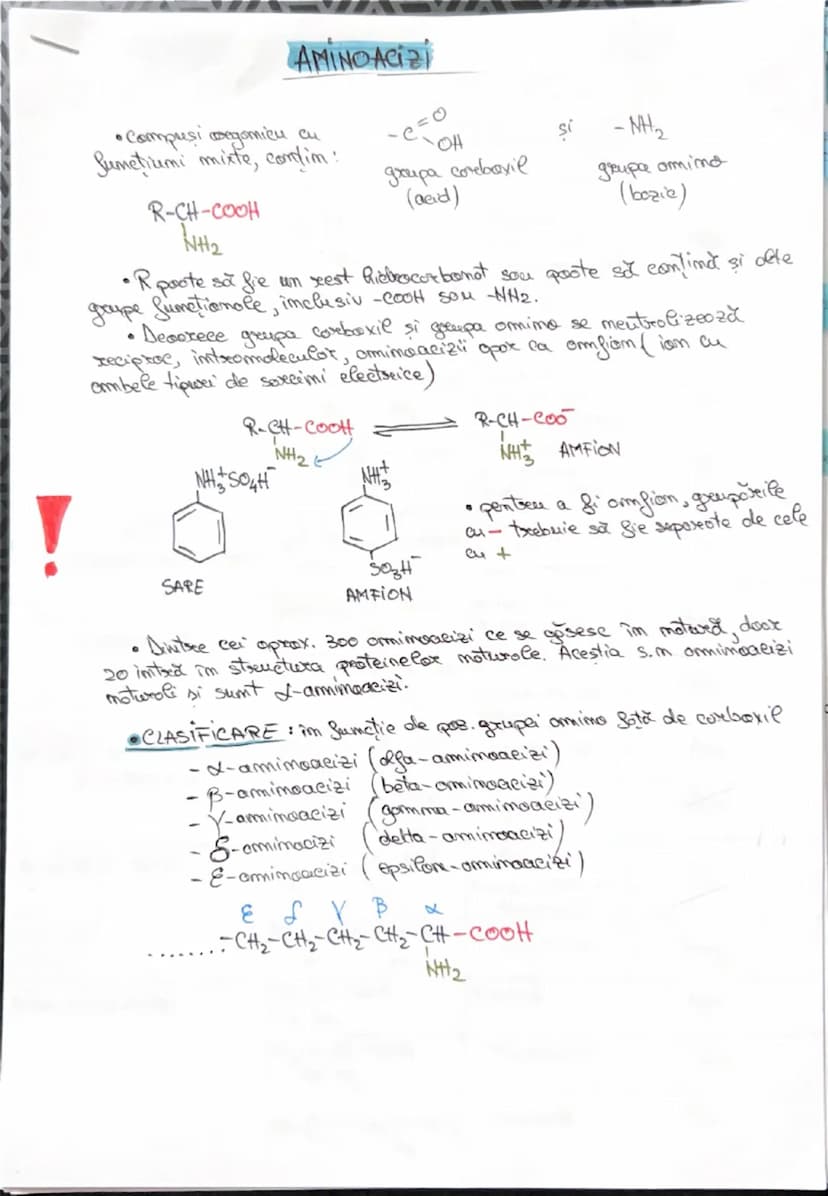 AMINOACIZI
• Compuși organici cu
funcțiuni mixte, conțin:
-C=O
\OH
și
-NH₂
grupa carboxil
(acid)
grupa amino
(bazic)
R-CH-COOH
NH₂
• R poate să fie un rest hidrocarbonat sau poate să conțină și alte
grupe funcționale, inclusiv -COOH sau -NH₂.
• Deoarece grupa carboxil și grupa amino se neutralizează
reciproc, intramolecular, aminoacizii apar ca amfion (ion cu
ambele tipuri de sarcini electrice)
R-CH-COOH ⇌ R-CH-COO⁻
NH₂ NH₃⁺ AMFION
NH₃⁺SO₄H⁻
SARE
NH₃⁺
SO₃H⁻
AMFION
• pentru a fi amfion, grupările
cu - trebuie să fie separate de cele
cu +
!
• Dintre cei aprox. 300 aminoacizi ce se găsesc în natură, doar
20 intră în structura proteinelor naturale. Aceștia s.n aminoacizi
naturali și sunt α-aminoacizi.
• CLASIFICARE: în funcție de poz. grupei amino față de carboxil
- α-aminoacizi (alfa-aminoacizi)
- β-aminoacizi (beta-aminoacizi)
- γ-aminoacizi (gamma-aminoacizi)
- δ-aminocizi (delta-aminoacizi)
- ε-aminoacizi (epsilon-aminoacizi)
ε δ γ β α
........-CH₂-CH₂-CH₂-CH₂-CH-COOH
NH₂